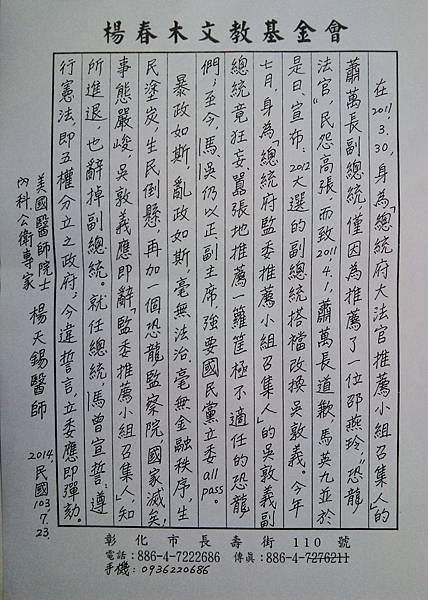 楊春木文教基金會
在2011.3.30,身為「總統府大法官推薦小組召集人」的
蕭萬長副總統,僅因為推薦了一位邵燕玲,“恐龍
法官”,民怨高張,而致2011.4.1,蕭萬長道歉,馬英九並於
是日宣布:2012大選的副總統搭檔改換吳敦義。今年
七月,身為「總統府監委推薦小組召集人」的吳敦義副
總統竟狂妄囂張地推薦一籮筐極不適任的恐龍
們;至今馬、吳仍以正副主席,強要國民黨立委all pass。
暴政如斯,亂政如斯,毫無法治,毫無金融秩序,生
民塗炭,生民倒懸,再加一個恐龍監察院,國家滅矣,
事態嚴峻,吳敦義應即辭「監委推薦小組召集人」,知
所進退,也辭掉副總統。就任總統,馬曾宣誓:遵
行憲法,即五權分立之政府,今違誓言,立委應即彈劾。
美國醫師院士
內科公衛專家
楊天錫醫師
2014.
民國103.7.23.
彰化市長壽街110號
電話:886-4-7222686 傳眞:886-4-7276211
手機:0936220686